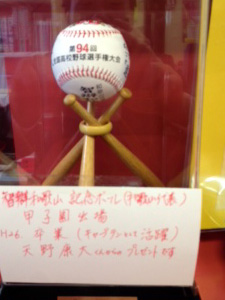 第94回
全国高校野球選手権大会
智辯和歌山 記念ボール(和歌山代表)
甲子園出場
H26. 卒業 (キャプテンとして活躍)
天野康大くんからプレゼント